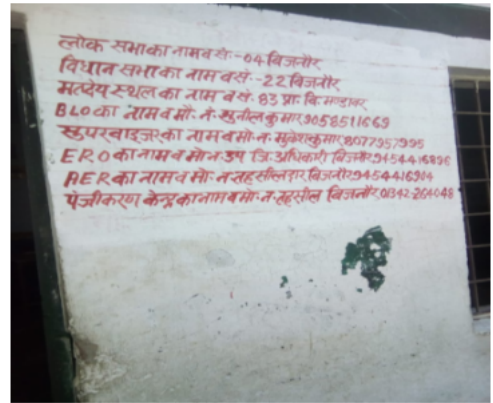 लोक सभा का नाम व सं:-04 बिजनौर
विधान सभा का नाम व सं:-22 बिजनौर
मतदेय स्थल का नाम व सं. 83 प्रा. वि. मण्डावर
BLO का नाम व मौ. नं. सुनील कुमार 9058511669
सुपरवाइजर का नाम व मो. न. मुकेश कुमार 8077957995
ERO का नाम व मो न उप जि. अधिकारी बिजनौर 9454416896
AER का नाम व मो. न तहसीलदार बिजनौर 9454416904
पंजीकरण केन्द्र का नाम व मो. न. तहसील बिजनौर 01342-264048